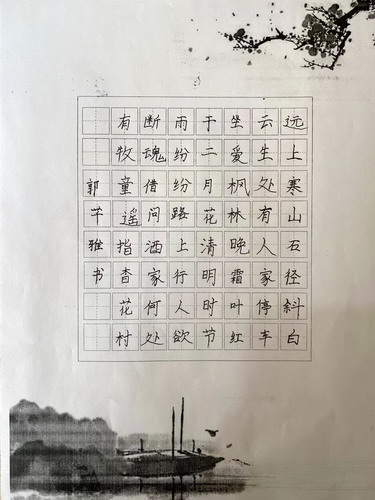 远上寒山石径斜白
云生处有人家停车
坐爱枫林晚霜叶红
于二月花清明时节
雨纷纷路上行人欲
断魂借问洒家何处
有牧童遥指杳花村
郭芊雅书